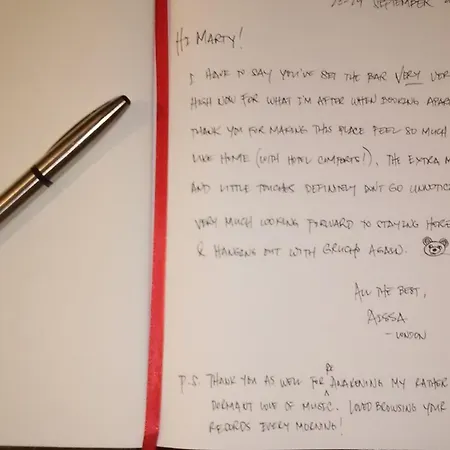 23-29 SEPTEMBER
HI MARTY!
I HAVE TO SAY YOU'VE SET THE BAR VERY VERY
HIGH NOW FOR WHAT I'M AFTER WHEN BOOKING
THANK YOU FOR MAKING THIS PLACE FEEL SO MUCH
LIKE HOME (WITH HOTEL COMFORTS!), THE EXTRA
AND LITTLE TOUCHES DEFINITELY DON'T GO
VERY MUCH LOOKING FORWARD TO STAYING HERE
& HANGING OUT WITH GRUCHO AGAIN.
ALL THE BEST,
AISSA
- LONDON
P.S. THANK YOU AS WELL FOR RE AWAKENING MY RATHER
DORMANT LOVE OF MUSIC. LOVED BROWSING YOUR
RECORDS EVERY MORNING!